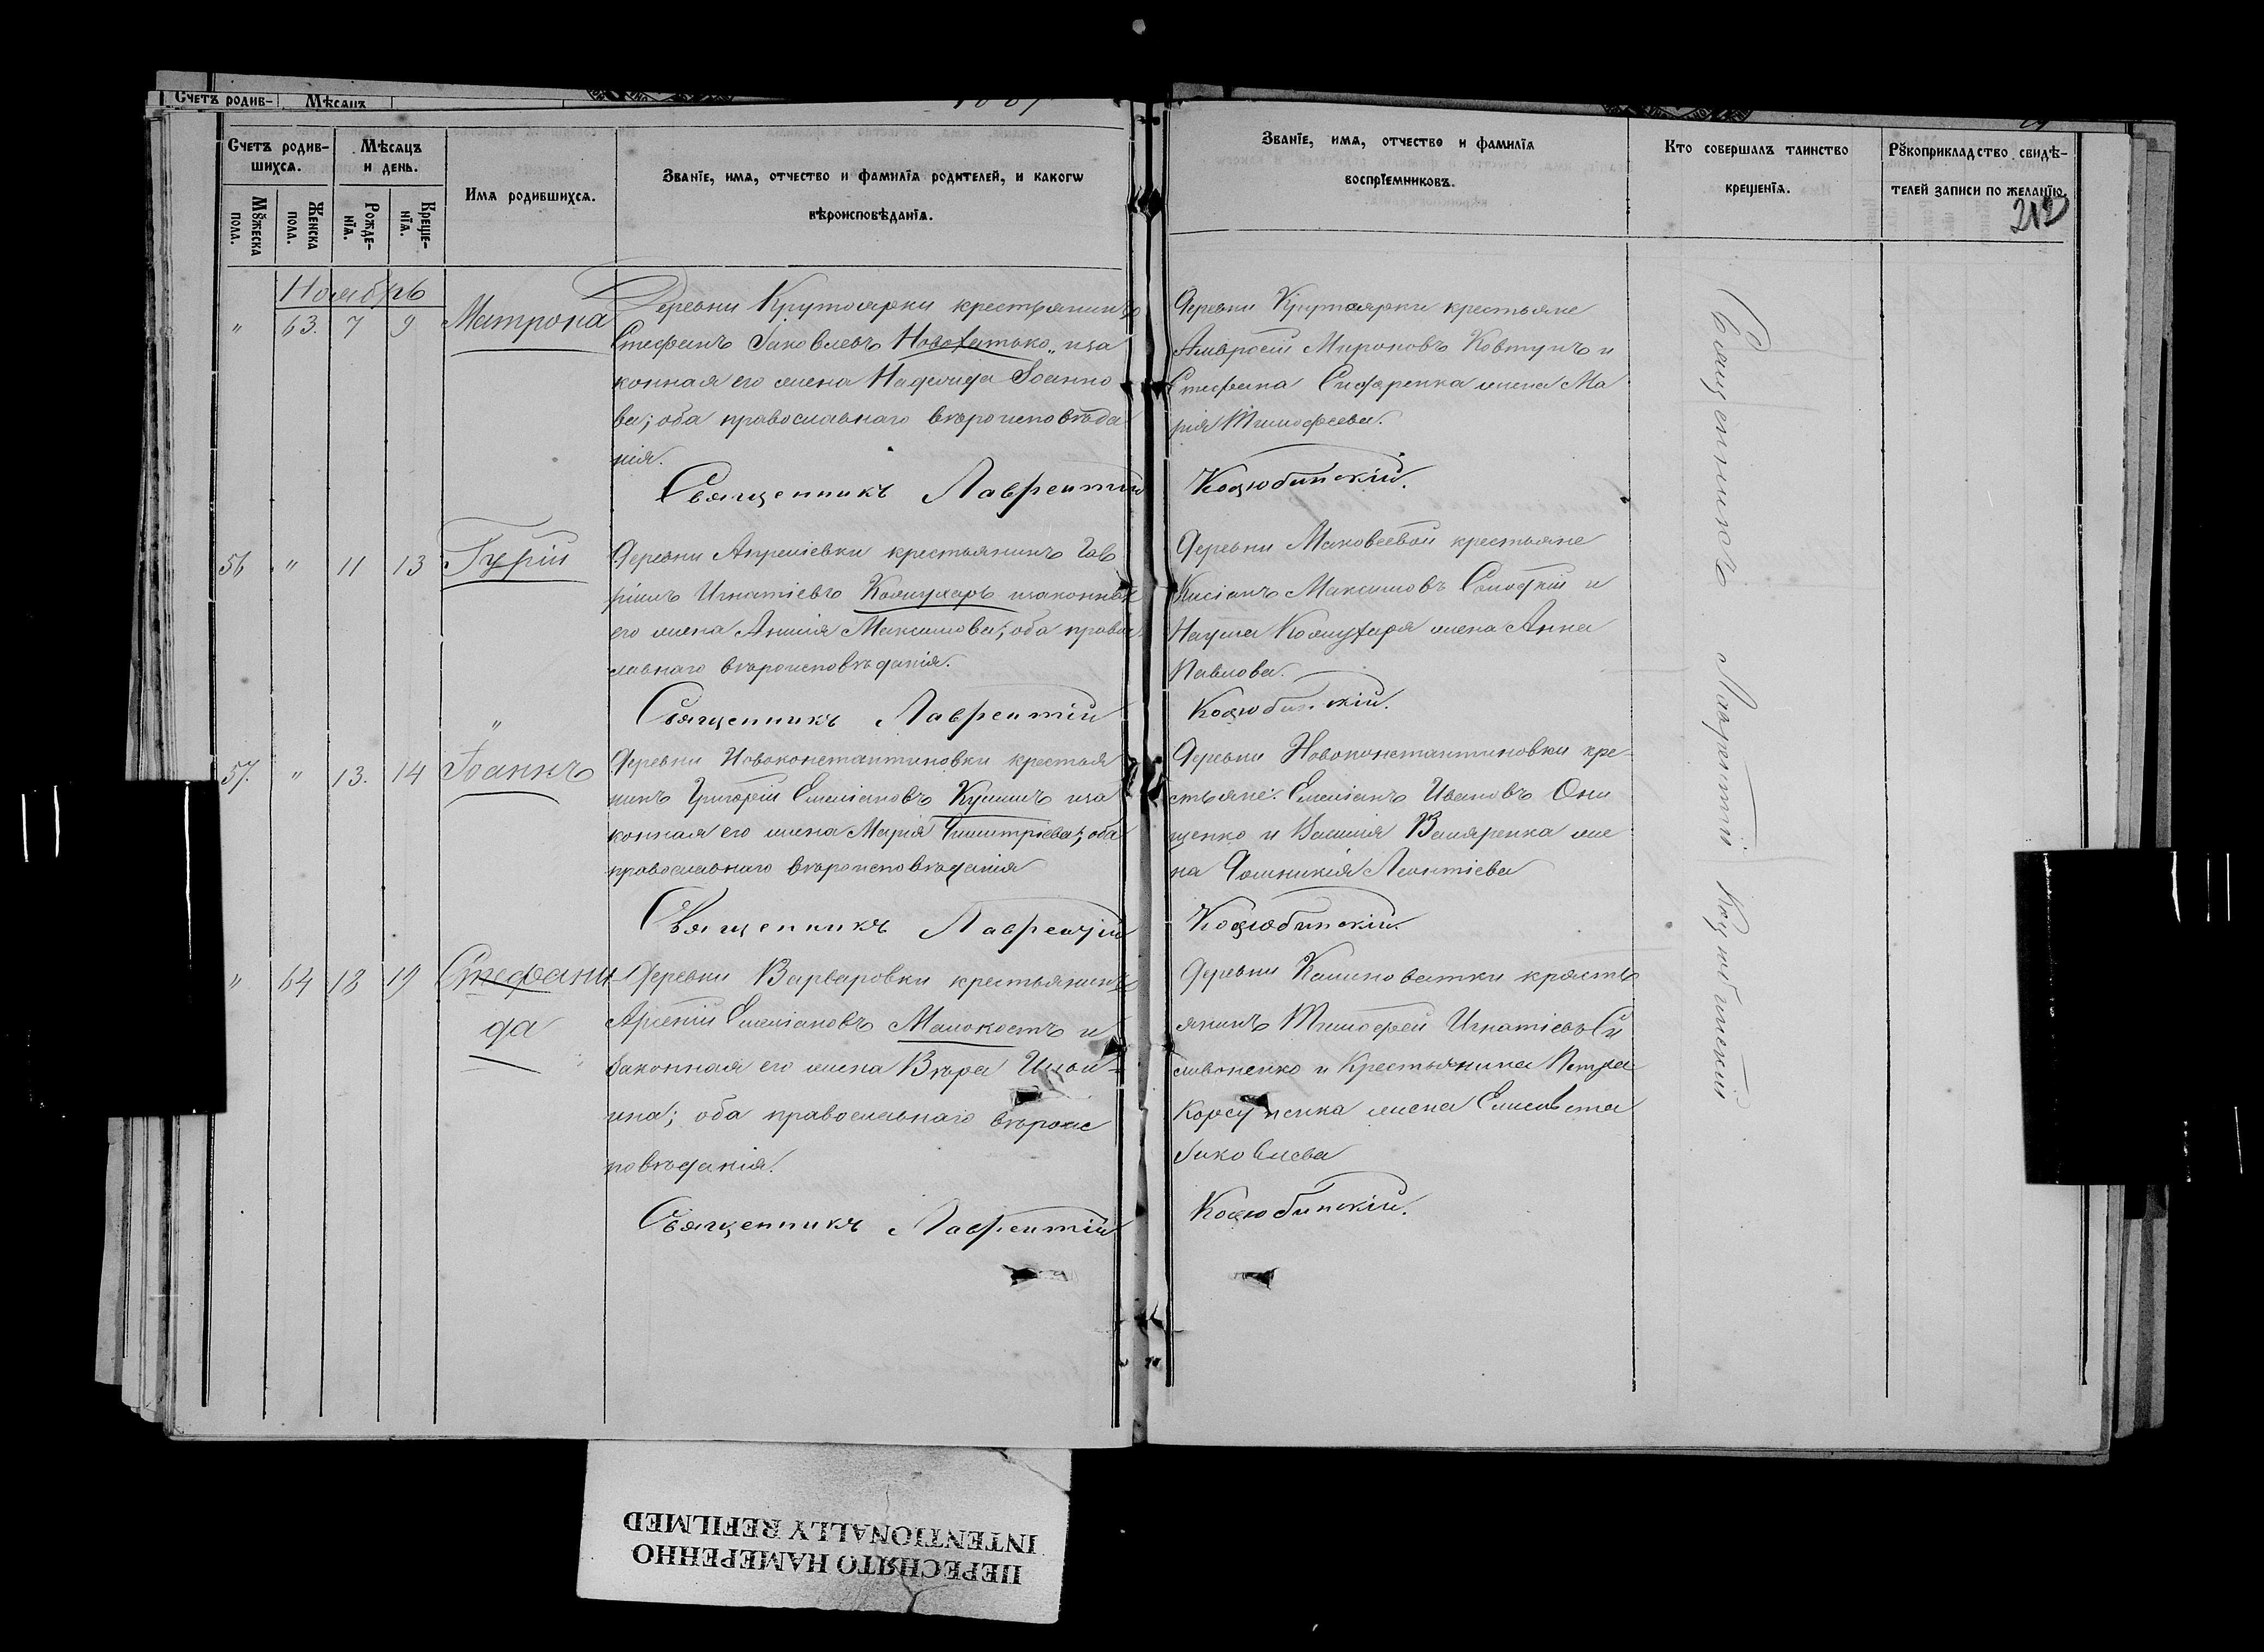 Счетъ родив- Мѣсяцъ
Счетъ родив-
шихся.
Мѣсяцъ
и день.
Мꙋжеска
пола.
Женска
пола.
Рожде-
нїя.
Креще-
нїя.
Имя родившихся.
Званїе, имя, отчество и фамилїя родителей, и какогѡ
вѣроисповѣданїя.
Званїе, имя, отчество и фамилїя
воспрїемниковъ.
Кто совершалъ таинство
крещенїя.
Рꙋкоприкладство свидѣ-
телей записи по желанїю.
212
Ноябрь
" 63. 7 9 Матрона
Деревни Крутоярки крестьянинъ
Стефанъ Іаковлевъ Новохатько, иза
конная его жена Надежда Іоанно
ва; оба православнаго вѣроисповѣда
нія.
Священникъ Лаврентій
Деревни Крутоярки крестьяне
Амвросій Мироновъ Ковтунъ и
Стефана Сидаренка жена Ма
рія Тимофеева.
Коцюбинскій.
56 " 11 13 Гурій
Деревни Апреліевки крестьянинъ Гав
ріилъ Игнатіевъ Кожухарь изаконная
его жена Аннія Максимова; оба право
славнаго вѣроисповѣданія.
Священникъ Лаврентій
Деревни Маковеевой крестьяне
Касіанъ Максимовъ и
Наума Кожухаря жена Анна
Павлова.
Коцюбинскій.
"
57. " 13. 14 Іоаннъ
Деревни Новоконстантиновки крестья
нинъ Григорій Емеліановъ иза
конная его жена Марія Димитріева; оба
православнаго вѣроисповѣданія
Священникъ Лаврентій
Деревни Новоконстантиновки кре
стьяне: Емеліанъ Ивановъ Они
щенко и Василія жe
на Домникія Леонтіева
Коцюбинскій.
" 64 18 19 Стефани
да
Деревни Варваровки крестьянинъ
Арсеній Емеліановъ Малокостъ и
законная его жена Вѣра Ильи-
ина; оба православнаго вѣроис
повѣданія.
Священникъ Лаврентій
Деревни Камановатки кресть
янинъ Тимофей Игнатіевъ Си
ливоненко и Крестьянина Петра
Корсуненка жена Елисавета
Іаковлева
Коцюбинскій.
Священникъ Лаврентій Коцюбинскій
ПЕРЕСНЯТО НАМЕРЕННО
INTENTIONALLY REFILMED